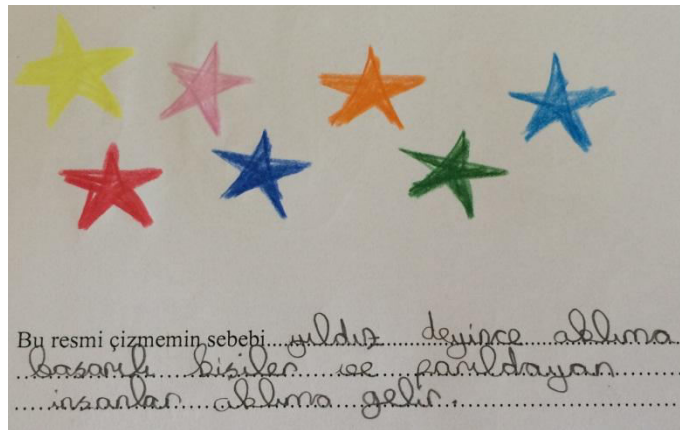 Bu resmi çizmemin sebebi yıldız deyince aklıma
başarılı kişiler ve parıldayan
insanlar aklıma gelir.